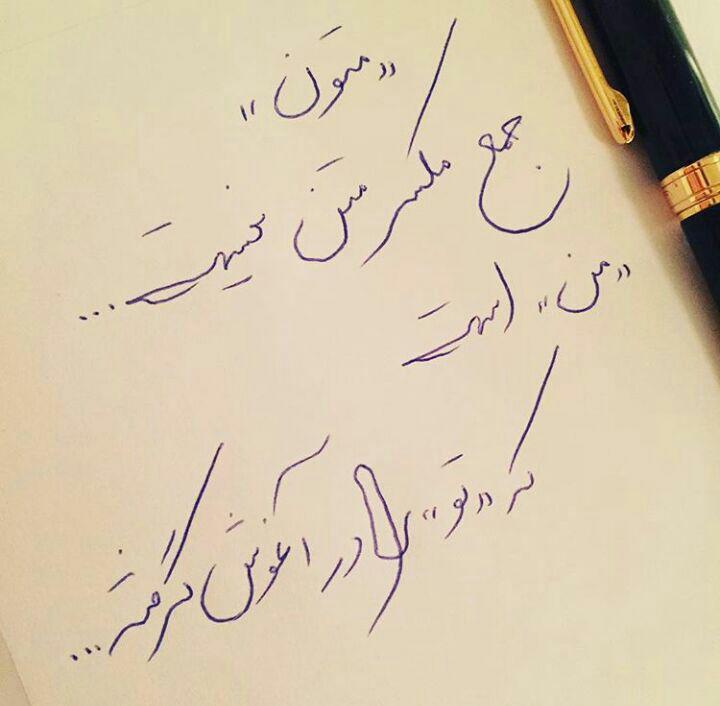 «متون»
جمع مکسر متن نیست...
«من» است
که «تو» را در آغوش گرفته...